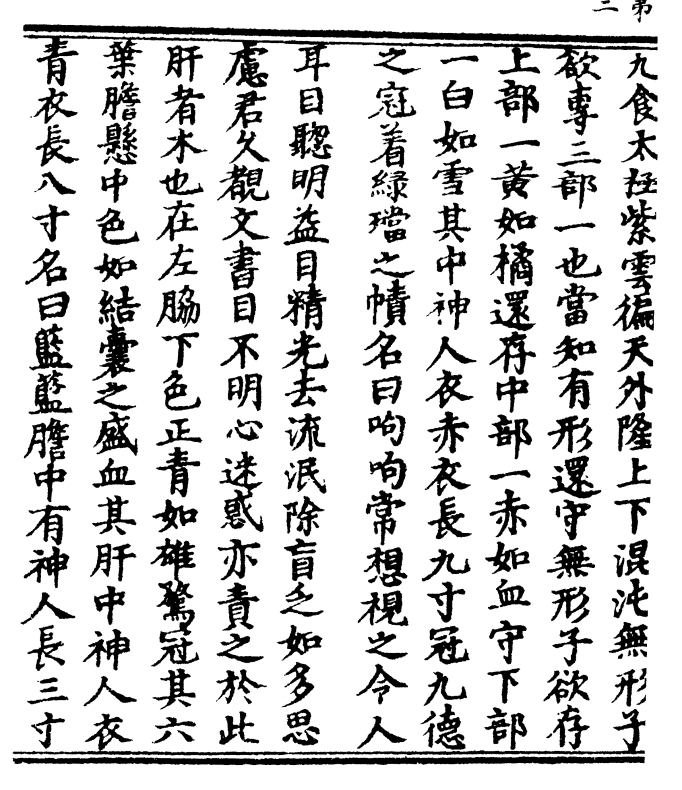 第二
九食太極紫雲徧天外隆上下混沌無形子
欲專三部一也當知有形還守無形子欲存
上部一黃如橘還存中部一赤如血守下部
一白如雪其中神人衣赤衣長九寸冠九德
之冠着緑璫之幘名曰呴呴常想視之令人
耳目聰明益目精光去流泯除盲乏如多思
慮君久覩文書目不明心迷惑亦責之於此
肝者木也在左脇下色正青如雄鶩冠其六
葉膽懸中色如結囊之盛血其肝中神人衣
青衣長八寸名曰藍藍膽中有神人長三寸